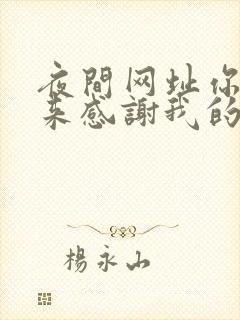 夜間网址你
来感謝我的
楊永山